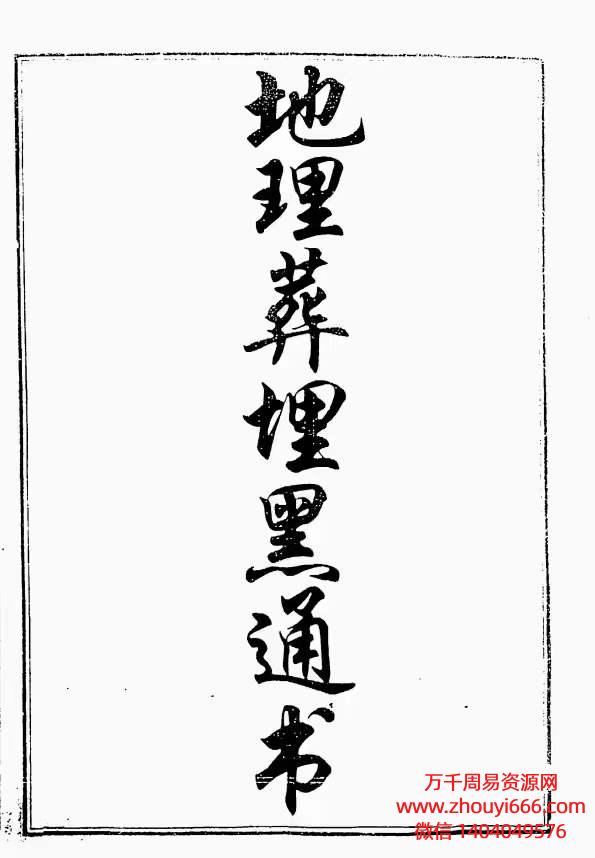 地理葬埋黑通书
万千周易资源网
www.zhouyi666.com
微信 1404049576